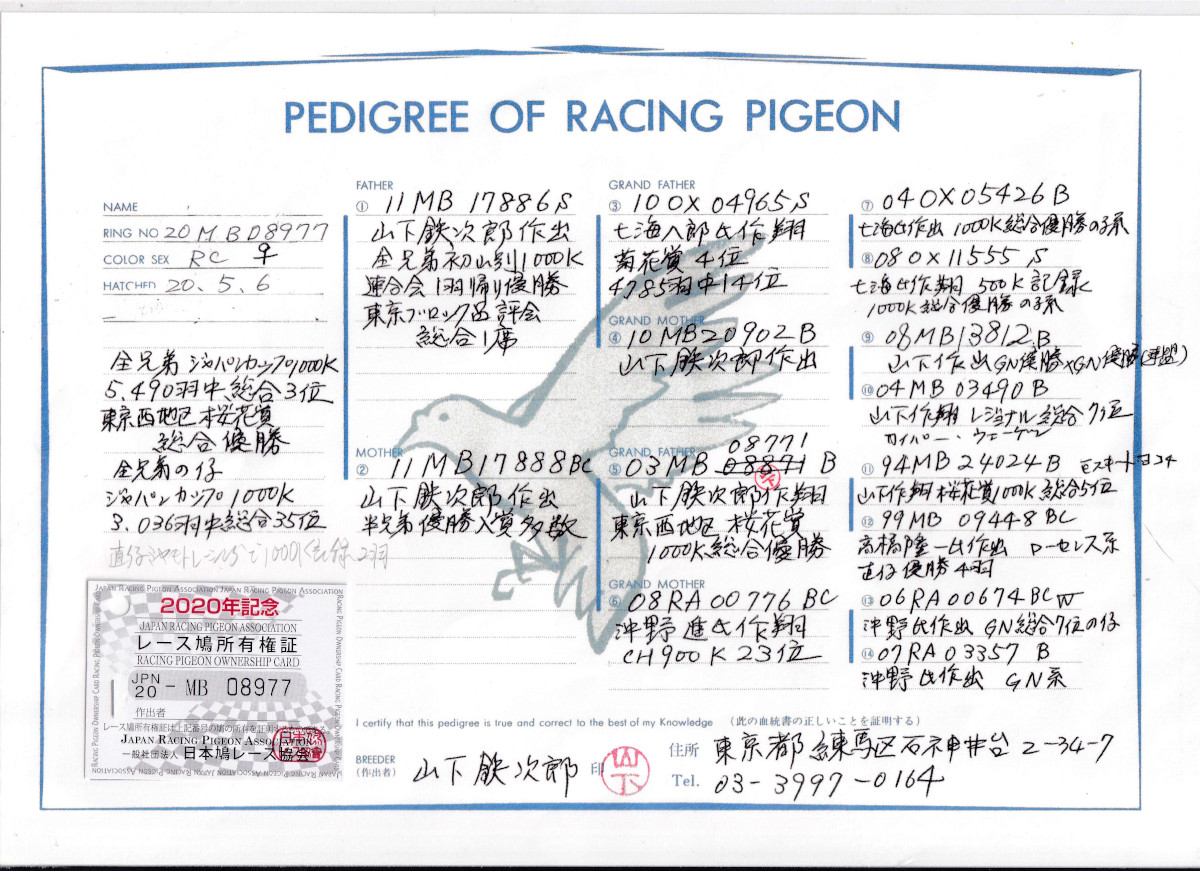 PEDIGREE OF RACING PIGEON
NAME
RING NO 20MBD8977
COLOR SEX RC ♀
HATCHED 20.5.6
全兄弟 ジャパンカップ1000K
5.490羽中総合3位
東京西地区 桜花賞
総合優勝
全兄弟の仔
ジャパンカップ1000K
3.036羽中総合35位
2羽
JAPAN RACING PIGEON ASSOCIATION JAPAN RACING PIGEON ASSOCIATION
2020年記念
JAPAN RACING PIGEON ASSOCIATION
レース鳩所有権証
RACING PIGEON OWNERSHIP CARD
JPN
20 - MB 08977
作出者
レース鳩所有権証は上記番号の鳩の所有を証明する
JAPAN RACING PIGEON ASSOCIATION
一般社団法人 日本鳩レース協会
FATHER
① 11MB 17886S
山下鉄次郎作出
全兄弟初山別1000K
連合会1羽帰り優勝
東京ブロック品評会
総合1席
MOTHER
② 11MB17888BC
山下鉄次郎作出
半兄弟優勝入賞多数
GRAND FATHER
③ 10OX04965S
七海八郎氏作翔
菊花賞4位
4785羽中14位
GRAND MOTHER
④ 10MB20902B
山下鉄次郎作出
GRAND FATHER 08771
⑤ 03MB 08871 B
山下鉄次郎作翔
東京西地区 桜花賞
1000K総合優勝
GRAND MOTHER
⑥ 08RA00776BC
沖野進氏作翔
CH900K23位
⑦ 04OX05426B
七海氏作出 1000K総合優勝の孫
⑧ 08OX11555 S
七海氏作翔 500K記録
1000K総合優勝の孫
⑨ 08MB13812B
山下作出GN優勝×GN優勝(連盟)
⑩ 04MB03490B
山下作翔 レジョナル総合7位
カイパー・ウェーゲン
⑪ 94MB24024B
山下作翔桜花賞100K総合5位
⑫ 99MB 09448BC
高橋隆一氏作出 ローセンス系
直仔優勝4羽
⑬ 06RA00674BCW
沖野氏作出 GN総合7位の仔
⑭ 07RA03357 B
沖野氏作出 GN系
I certify that this pedigree is true and correct to the best of my Knowledge (此の血統書の正しいことを証明する)
BREEDER
(作出者) 山下鉄次郎 印 山下
住所 東京都練馬区石神井台2-34-7
Tel. 03-3997-0164